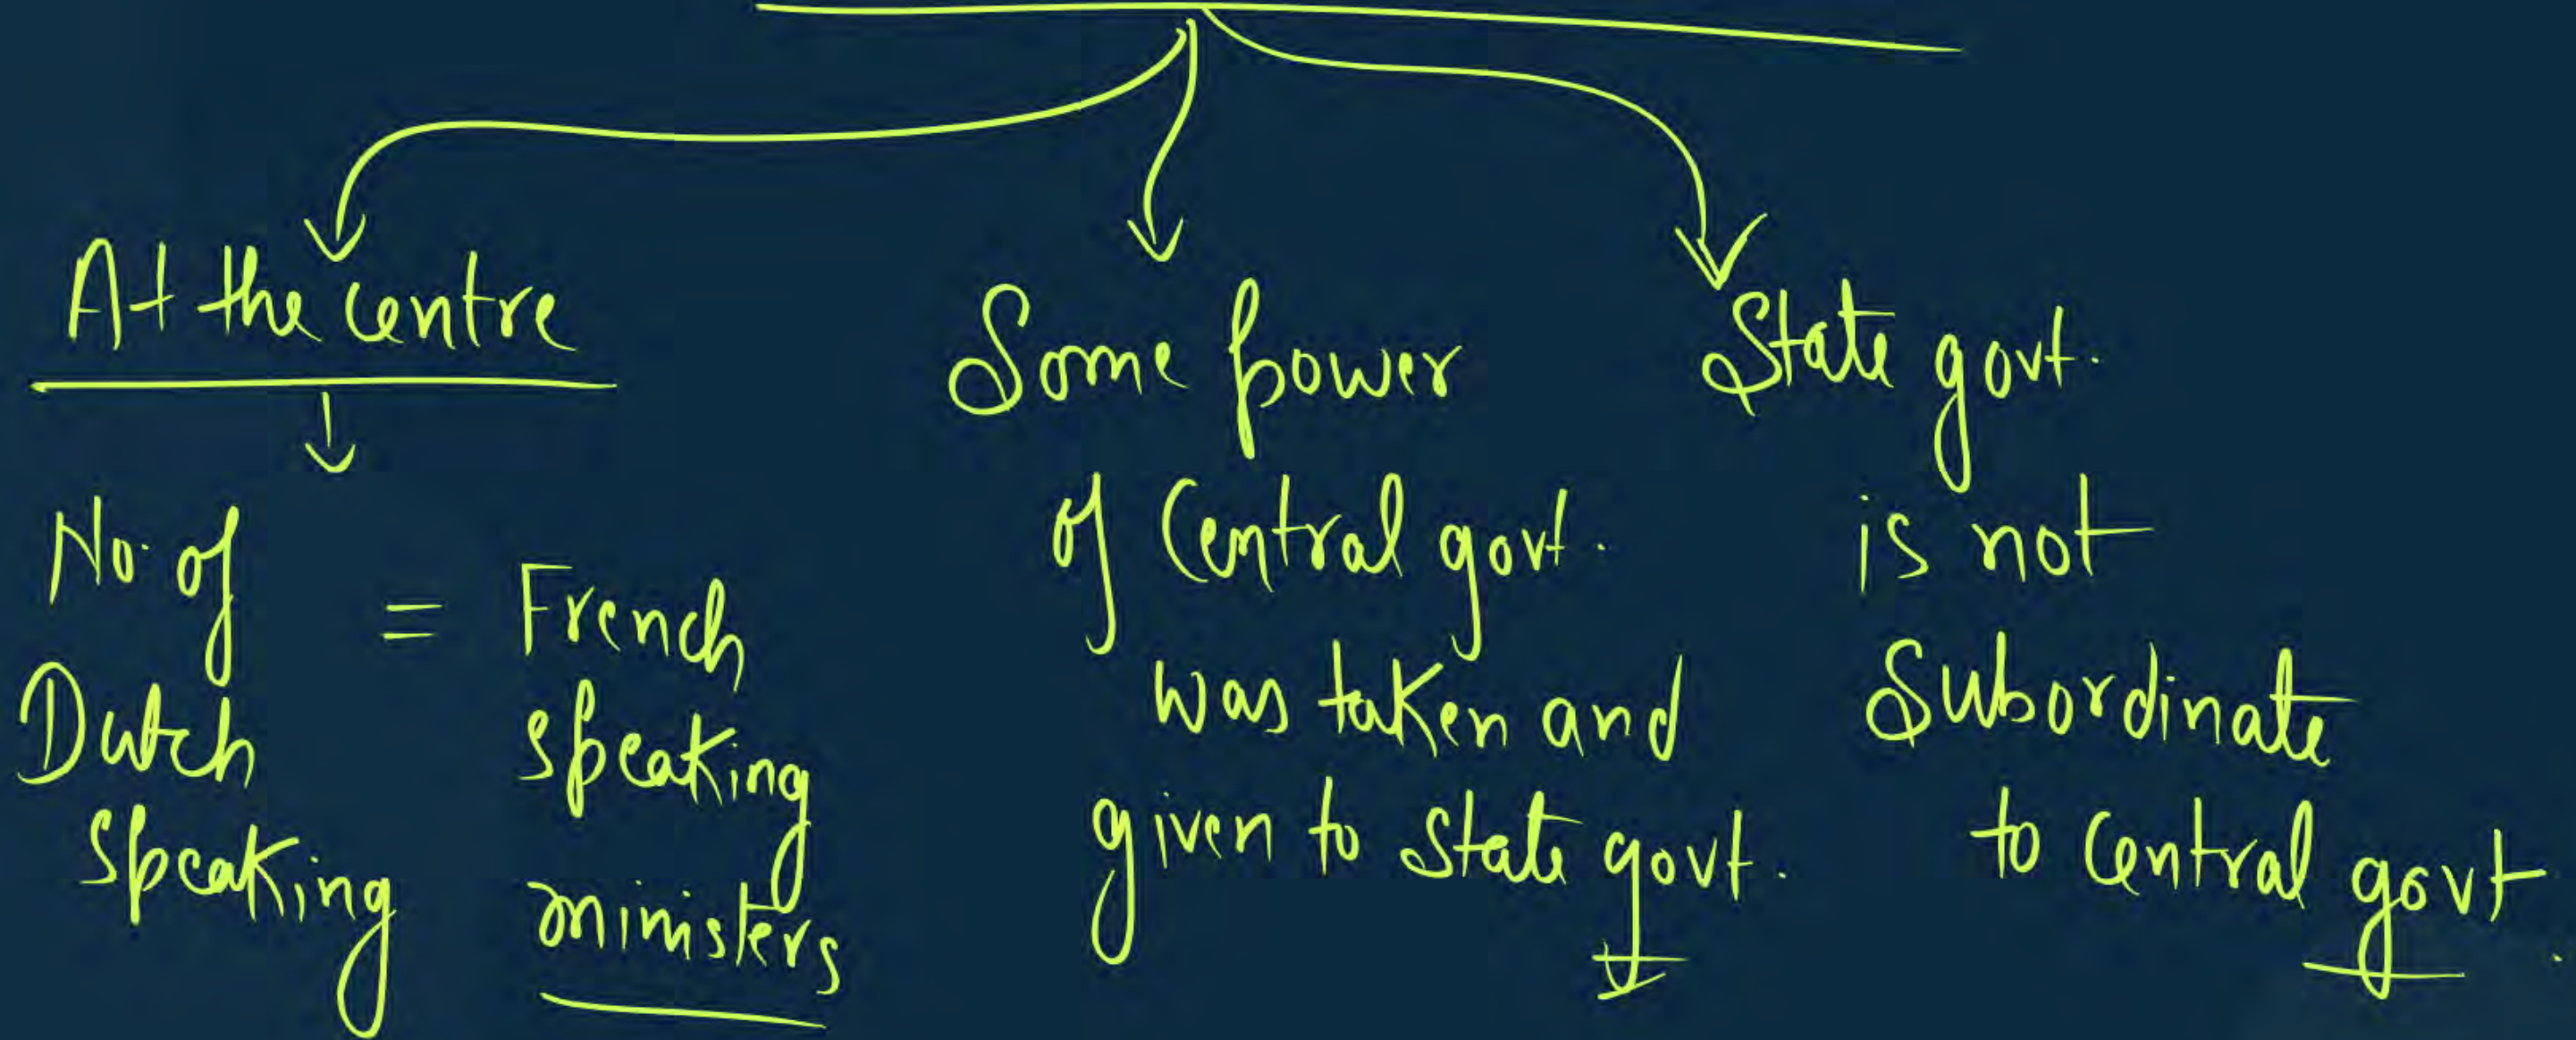 At the centre
No. of
Dutch
Speaking
= French
speaking
ministers
Some power
of Central govt.
was taken and
given to State govt.
State govt.
is not
Subordinate
to Central govt.